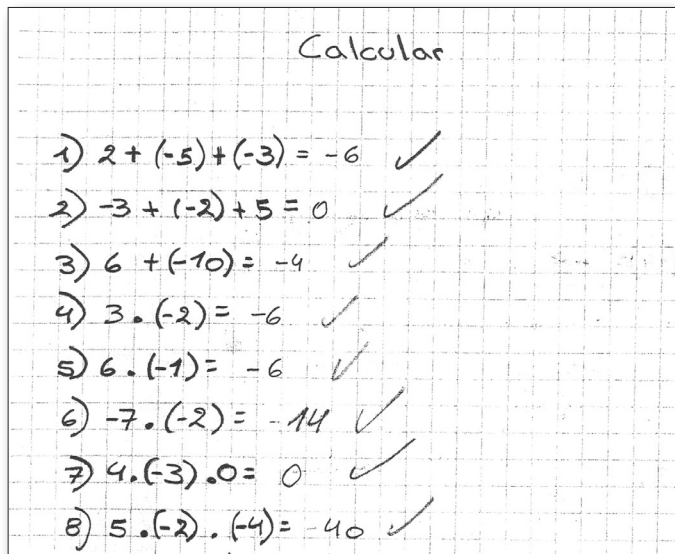 Calcular
1) 2 + (-5) + (-3) = -6 ✓
2) -3 + (-2) + 5 = 0 ✓
3) 6 + (-10) = -4 ✓
4) 3 . (-2) = -6 ✓
5) 6 . (-1) = -6 ✓
6) -7 . (-2) = -14 ✓
7) 4 . (-3) . 0 = 0 ✓
8) 5 . (-2) . (-4) = -40 ✓